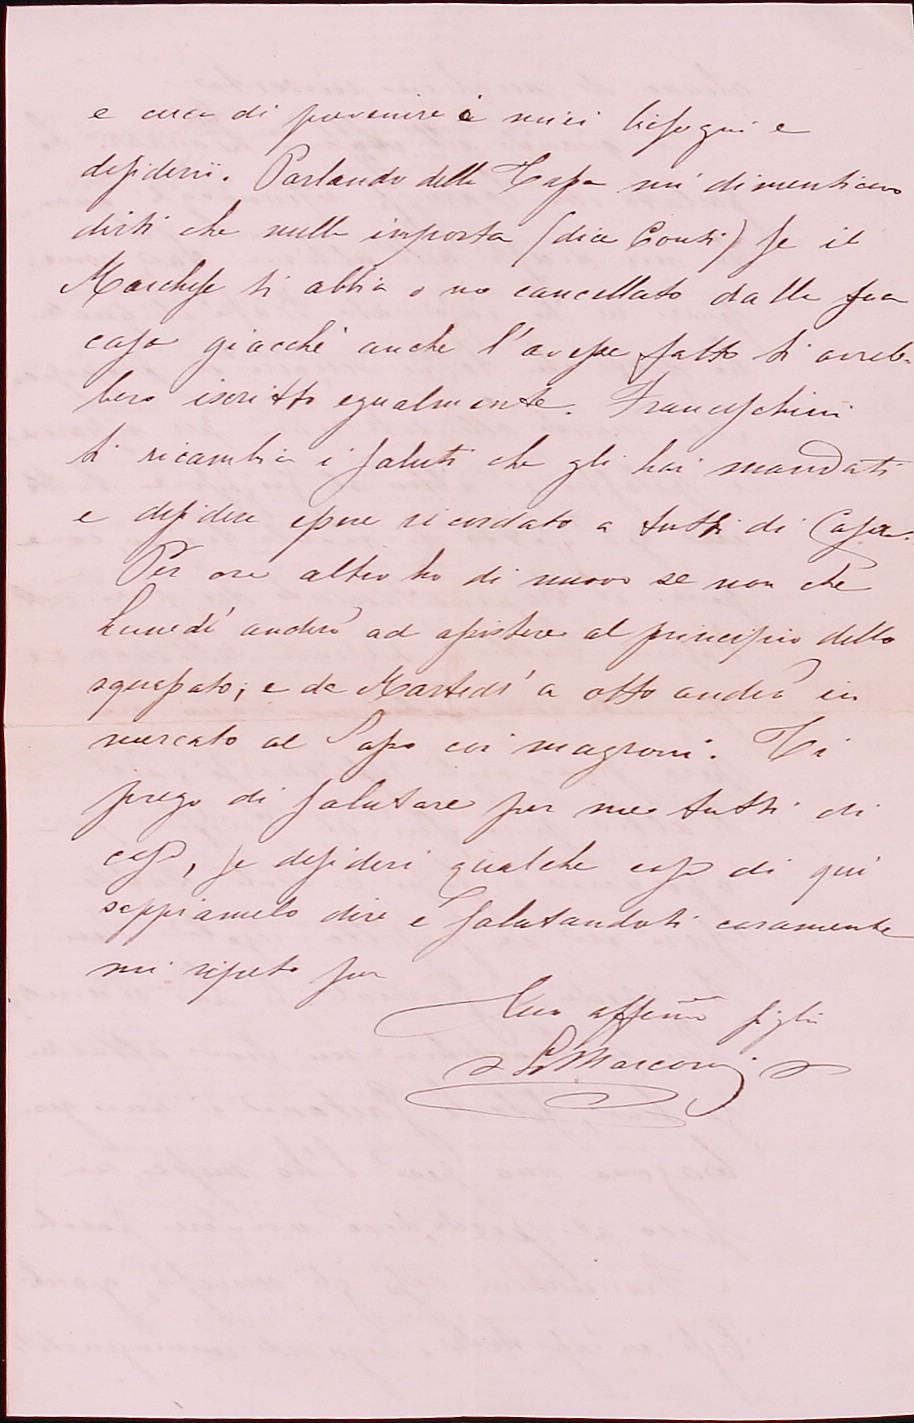 e cerca di prevenire i miei bisogni e
desiderii. Parlando della Tassa mi dimenticavo
dirti che nulla importa (dice Conti) se il
Marchese ti abbia o no cancellato dalla sua
casa giacchè anche l'avesse fatto ti avreb-
bero iscritto egualmente. Franceschini
ti ricambia i saluti che gli hai mandati
e desidera essere ricordato a tutti di Casa.
Per ora altro ho di nuovo se non che
Lunedì andrò ad assistere al principio dello
squassato; e da Martedì a otto andrò in
mercato al Sasso coi magroni. Ti
prego di salutare per me tutti di
casa, se desideri qualche cosa di quì
seppiamelo dire e salutandoti caramente
mi ripeto per
Tuo affemo figlio
G Marconi